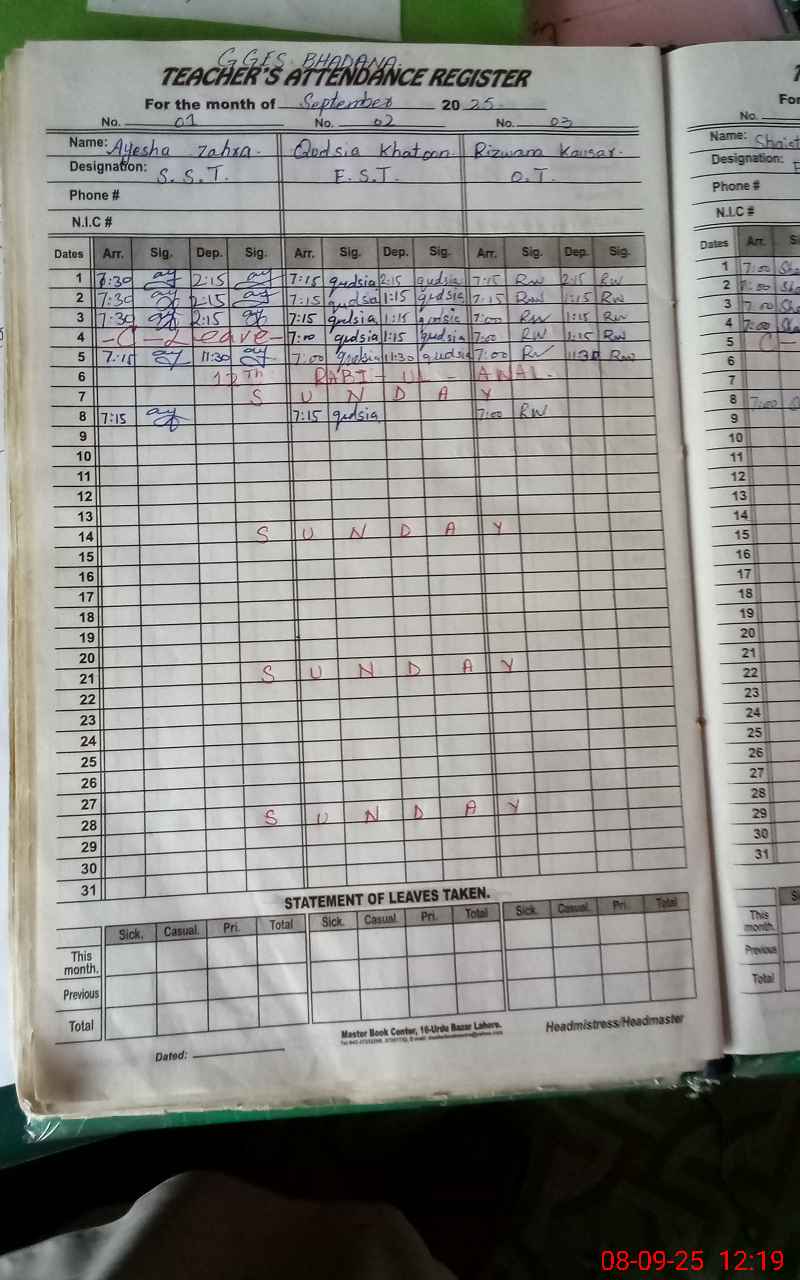 GGES BHADANA.
TEACHER'S ATTENDANCE REGISTER
For the month of September 2025
No. 01 No. 02 No. 03
Name: Ayesha Zahra. Qudsia Khatoon. Rizwana Kausar.
Designation: S.S.T. E.S.T. O.T.
Phone #
N.I.C #
Dates Arr. Sig. Dep. Sig. Arr. Sig. Dep. Sig. Arr. Sig. Dep. Sig.
1 7:30 ay 2:15 ay 7:15 qudsia 2:15 qudsia 7:15 RW 2:15 RW
2 7:30 ay 2:15 ay 7:15 qudsia 1:15 qudsia 7:15 RW 1:15 RW
3 7:30 ay 2:15 ay 7:15 qudsia 1:15 qudsia 7:00 RW 1:15 RW
4 -C-Leave- 7:00 qudsia 1:15 qudsia 7:00 RW 1:15 RW
5 7:15 ay 11:30 ay 7:00 qudsia 11:30 qudsia 7:00 RW 11:30 RW
6 12Th RABI-UL-AWAL.
7 S U N D A Y
8 7:15 ay 7:15 qudsia 7:00 RW
9
10
11
12
13
14 S U N D A Y
15
16
17
18
19
20
21 S U N D A Y
22
23
24
25
26
27
28 S U N D A Y
29
30
31
STATEMENT OF LEAVES TAKEN.
Sick. Casual. Pri. Total Sick. Casual. Pri. Total Sick. Casual. Pri. Total
This month.
Previous
Total
Master Book Center, 16-Urdu Bazar Lahore.
Headmistress/Headmaster
Dated:
For
No.
Name:
Designation:
Phone #
N.I.C #
Dates Arr.
1 7:00
2 7:00
3 7:00
4 7:00
5 C-
6
7
8 7:00
9
10
11
12
13
14
15
16
17
18
19
20
21
22
23
24
25
26
27
28
29
30
31
This month.
Previous
Total
08-09-25 12:19